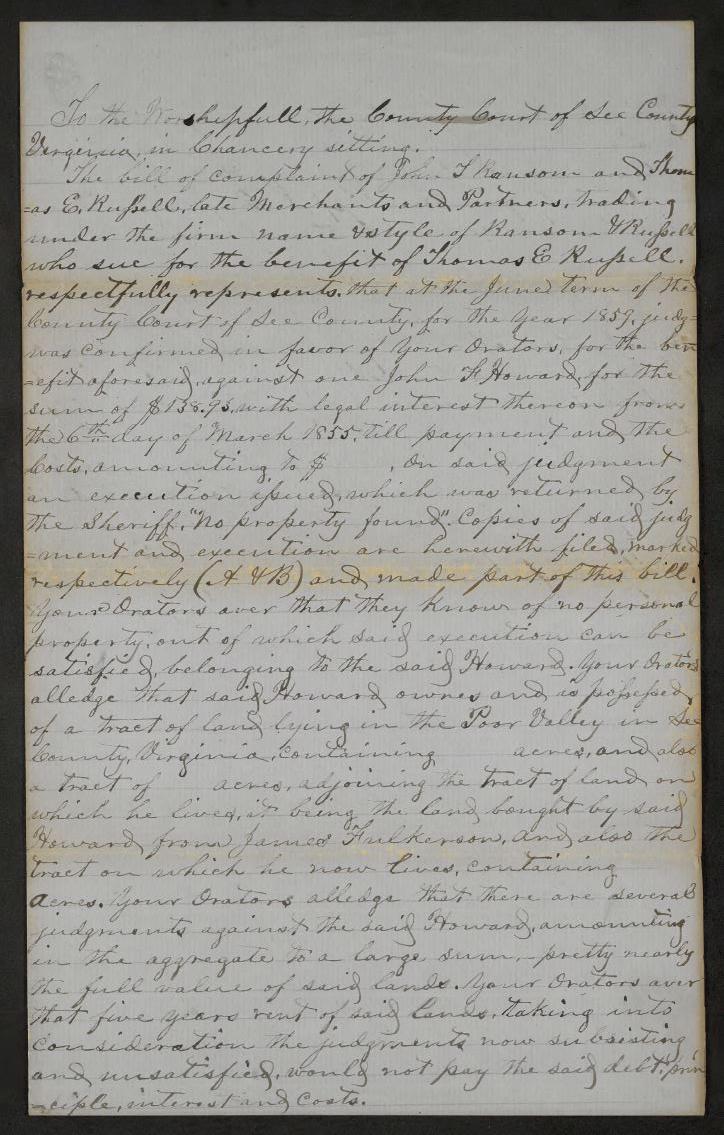 To the Worshipfull, the County Court of Lee County
Virginia, in Chancery sitting.
The bill of complaint of John T Ransom and Thom
=as E. Russell, late Merchants and Partners, trading
under the firm name & style of Ransom & Russell
who sue for the benefit of Thomas E Russell.
respectfully represents, that at the June term of the
County Court of Lee County, for the year 1859, judg=
was confirmed in favor of Your Orators, for the ben
=efit aforesaid, against one John F Howard, for the
sum of $138.95, with legal interest thereon from
the 6th day of March 1855, till payment and the
Costs, amounting to $ , On said judgment
an execution issued, which was returned by
the Sheriff, "No property found". Copies of said judg
=ment and execution are herewith filed, marked
respectively (A & B) and made part of this bill.
Your Orators aver that they know of no personal
property, out of which said execution can be
satisfied, belonging to the said Howard. Your Orators
alledge that said Howard ownes and is possessed
of a tract of land lying in the Poor Valley in Lee
County, Virginia, containing acres, and also
a tract of acres, adjoining the tract of land on
which he lives, it being the land bought by said
Howard from James Fulkerson, and also the
tract on which he now lives, containing
acres. Your Orators alledge that there are several
judgments against the said Howard, amounting
in the aggregate to a large sum,- pretty nearly
the full value of said lands. Your Orators aver
that five years rent of said lands, taking into
consideration the judgments now subsisting
and unsatisfied, would not pay the said debt, prin
=ciple, interest and costs.